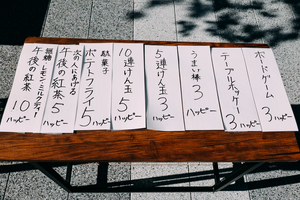 ボードゲーム
3 ハッピー
テーブルホッケー
3 ハッピー
うまい棒
3
ハッピー
5連けん玉
5
ハッピー
10連けん玉
5
ハッピー
駄菓子
ポテトフライ
5 ハッピー
次の人にあげる
午後の紅茶 5
ハッピー
無糖 レモン ミルクティー
午後の紅茶 10
ハッピー